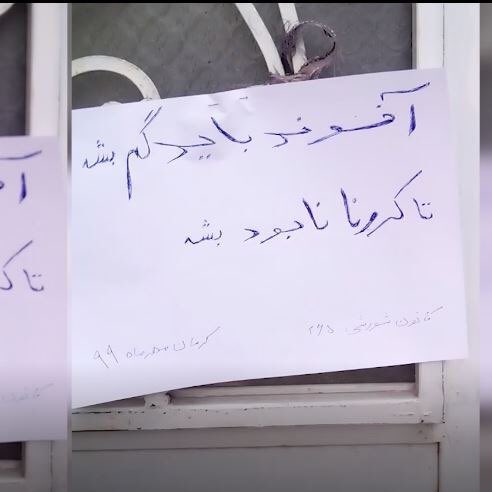 آخوند باید گم بشه
تا کرونا نابود بشه
کانون شورشی
کرمان مهرماه ۹۹